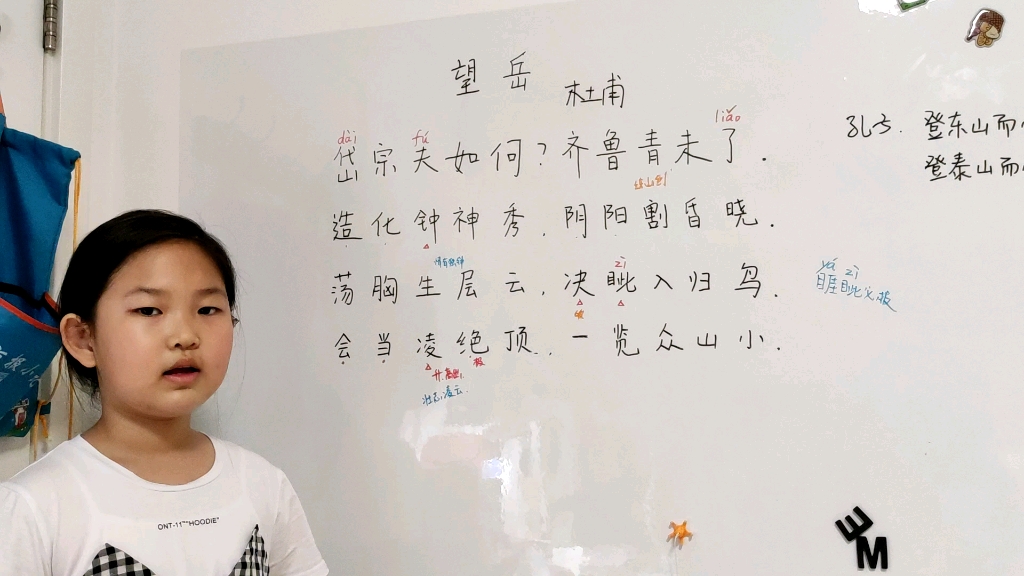 望岳
杜甫
dài fú liǎo
岱宗夫如何？齐鲁青未了．
造化钟神秀．阴阳割昏晓．
zì
荡胸生层云．决眦入归鸟．
会当凌绝顶．一览众山小．
极
壮志凌云．
yá zì
睚眦必报
孔子．登东山而小
登泰山而
ONT-11"HOODIE"
M